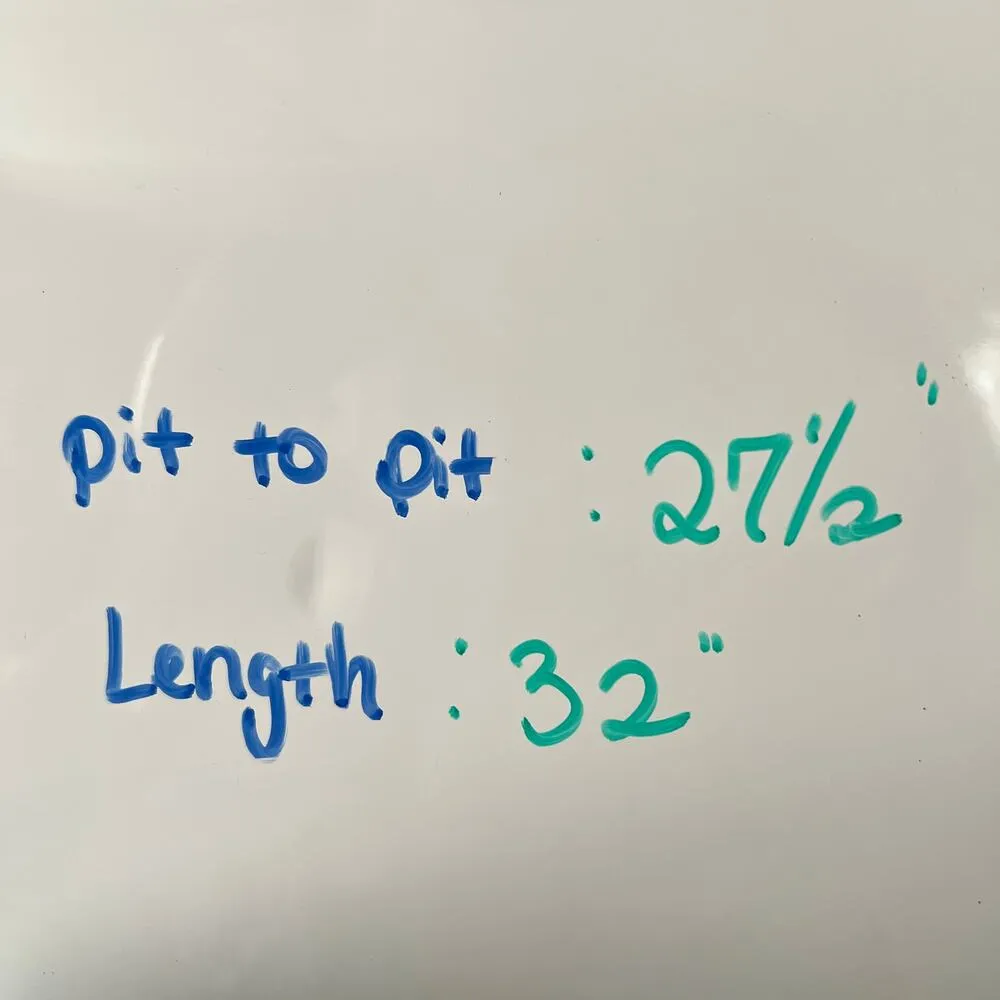 pit to pit : 27 1/2"
Length : 32"